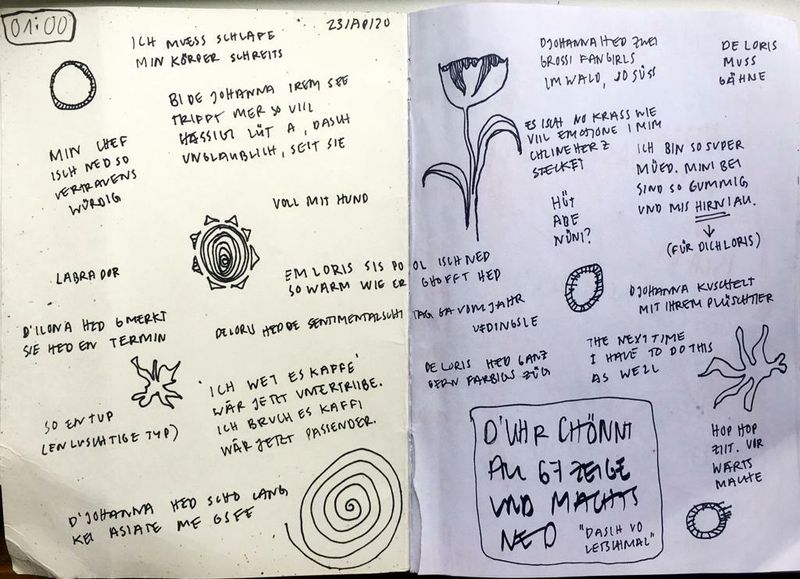 01:00
23/APR/20
ICH MUESS SCHLAFE
MIN KÖRPER SCHREITS
BI DE JOHANNA IREM SEE
TRIFFT MER SO VIIL
HÄSSIGI LÜT A, DASCH
UNGLAUBLICH, SEIT SIE
MIN CHEF
ISCH NED SO
VERTRAUENS
WÜRDIG
VOLL MIT HUND
LABRADOR
EM LORIS SIS PO OL ISCH NED
SO WARM WIE ER GHOFFT HED
D'ILONA HED GMERKT
SIE HED EN TERMIN
DE LORIS HED DE SENTIMENTALSCHT TAG GA VOM JAHR
VEDINGSLE
SO EN TUP
(EN LUSCHTIGE TYP)
"ICH WET ES KAFFE"
WÄR JETZT UNTERTRIIBE.
ICH BRUCH ES KAFFI
WÄR JETZT PASSENDER.
D'JOHANNA HED SCHO LANG
KEI ASIATE ME GSEE
DJOHANNA HED ZWEI
GROSSI FANGIRLS
IM WALD, JO SÜSS
DE LORIS
MUSS
GÄHNE
ES ISCH NO KRASS WIE
VIIL EMOTIONE I MIM
CHLINE HERZ
STECKET
ICH BIN SO SUPER
MÜED. MINI BEI
SIND SO GUMMIG
UND MIS HIRNI AU.
(FÜR DICH LORIS)
HÜT
ABE
NÜNI?
DJOHANNA KUSCHELT
MIT IHREM PLÜSCHTIER
DE LORIS HED GANZ
GERN FARBIGS ZÜG
THE NEXT TIME
I HAVE TO DO THIS
AS WELL
D'UHR CHÖNNT
AU 67 ZEIGE
UND MACHTS
NED
"DASCH VO
LETSCHTMAL"
HOP HOP
ZIIT. VIR
WÄRTS
MACHE